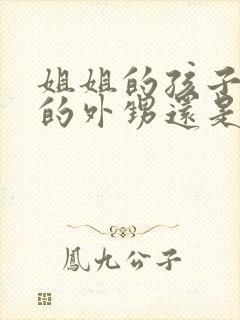 姐姐的孩子
的外甥還是
鳳九公子